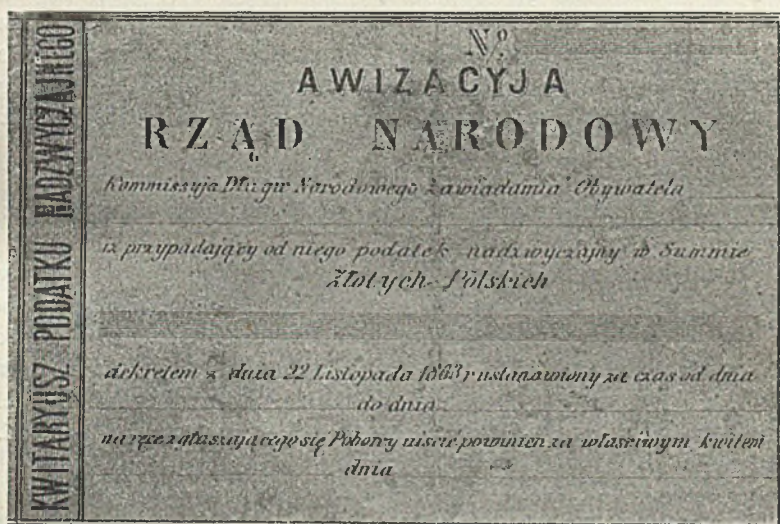 KWITARYUSZ PODATKU NADZWYCZAJNEGO
Nº
AWIZACYJA
RZĄD NARODOWY
Kommissyja Długu Narodowego zawiadamia Obywatela
iż przypadający od niego podatek nadzwyczajny w Summie
Złotych Polskich
dekretem z dnia 22 Listopada 1863 r ustanowiony za czas od dnia
do dnia
na ręce zgłaszającego się Poborcy uiścić powinien za właściwym kwitem
dnia